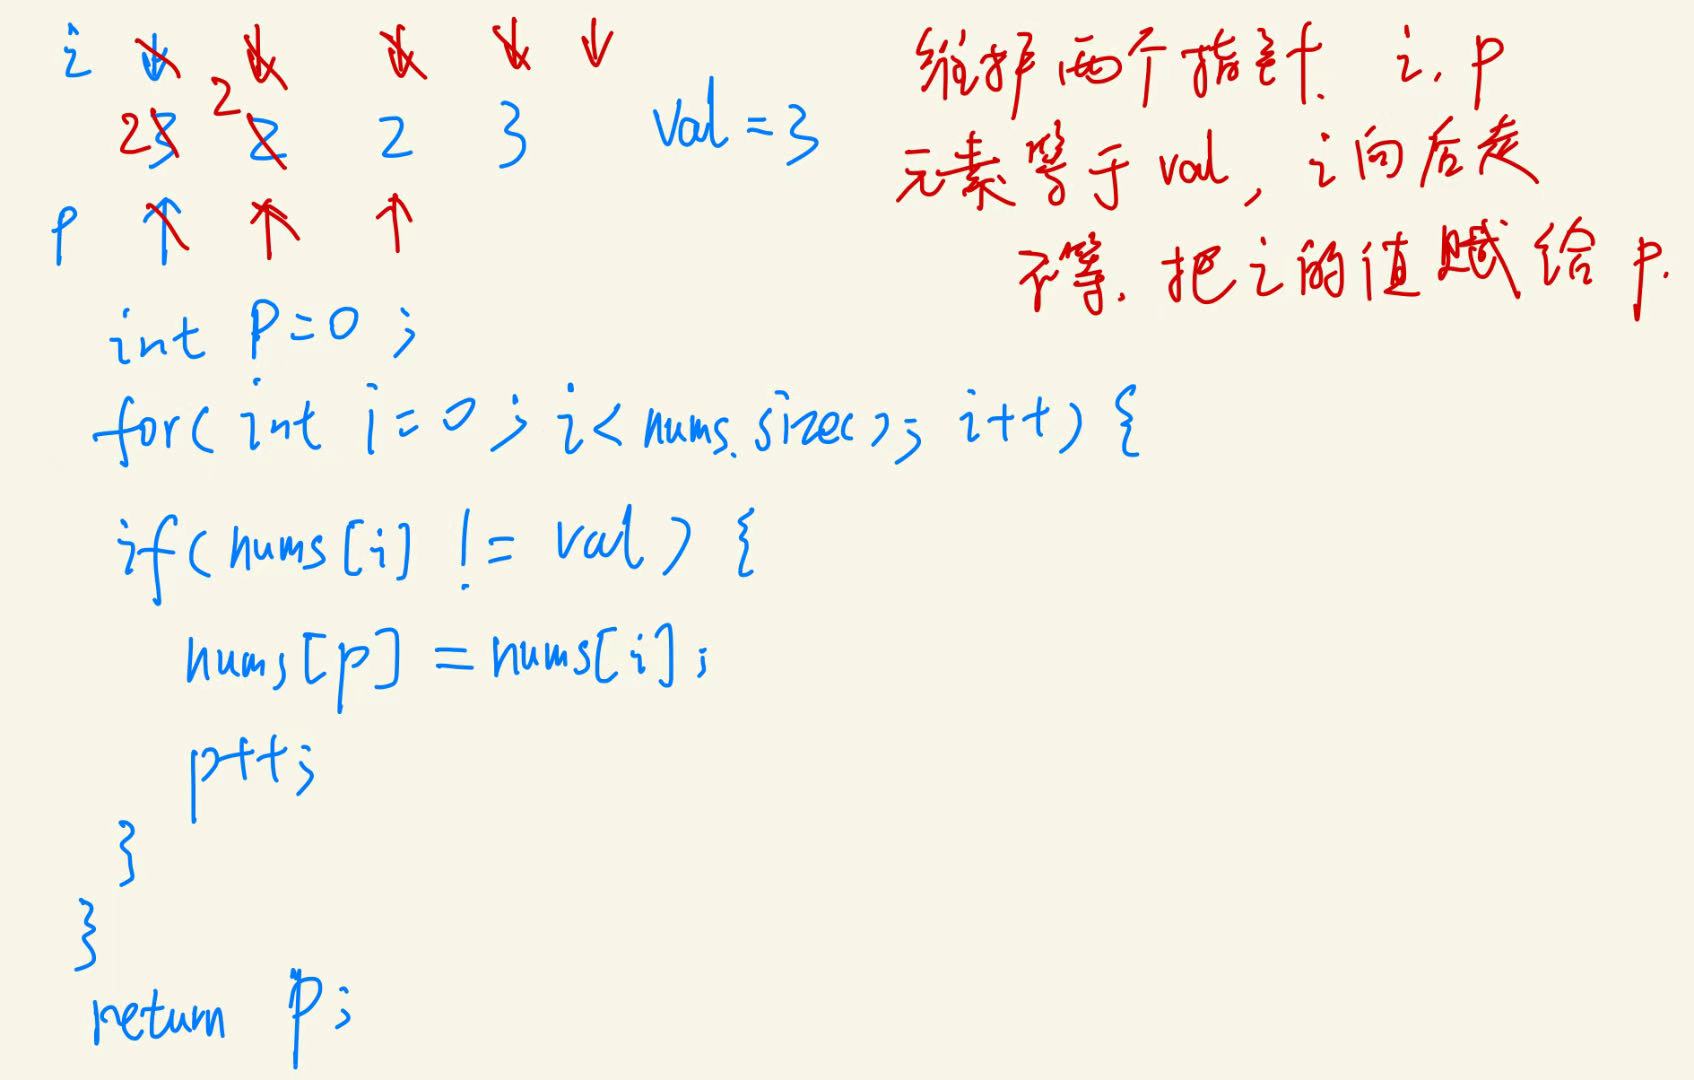 i
2 3 2 2 2 3 val = 3
p
维护两个指针. i, p
元素等于 val, i向后走
不等, 把i的值赋给 p.
int p=0;
for(int i=0; i<nums.size(); i++) {
if(nums[i] != val) {
nums[p] = nums[i];
p++;
}
}
return p;